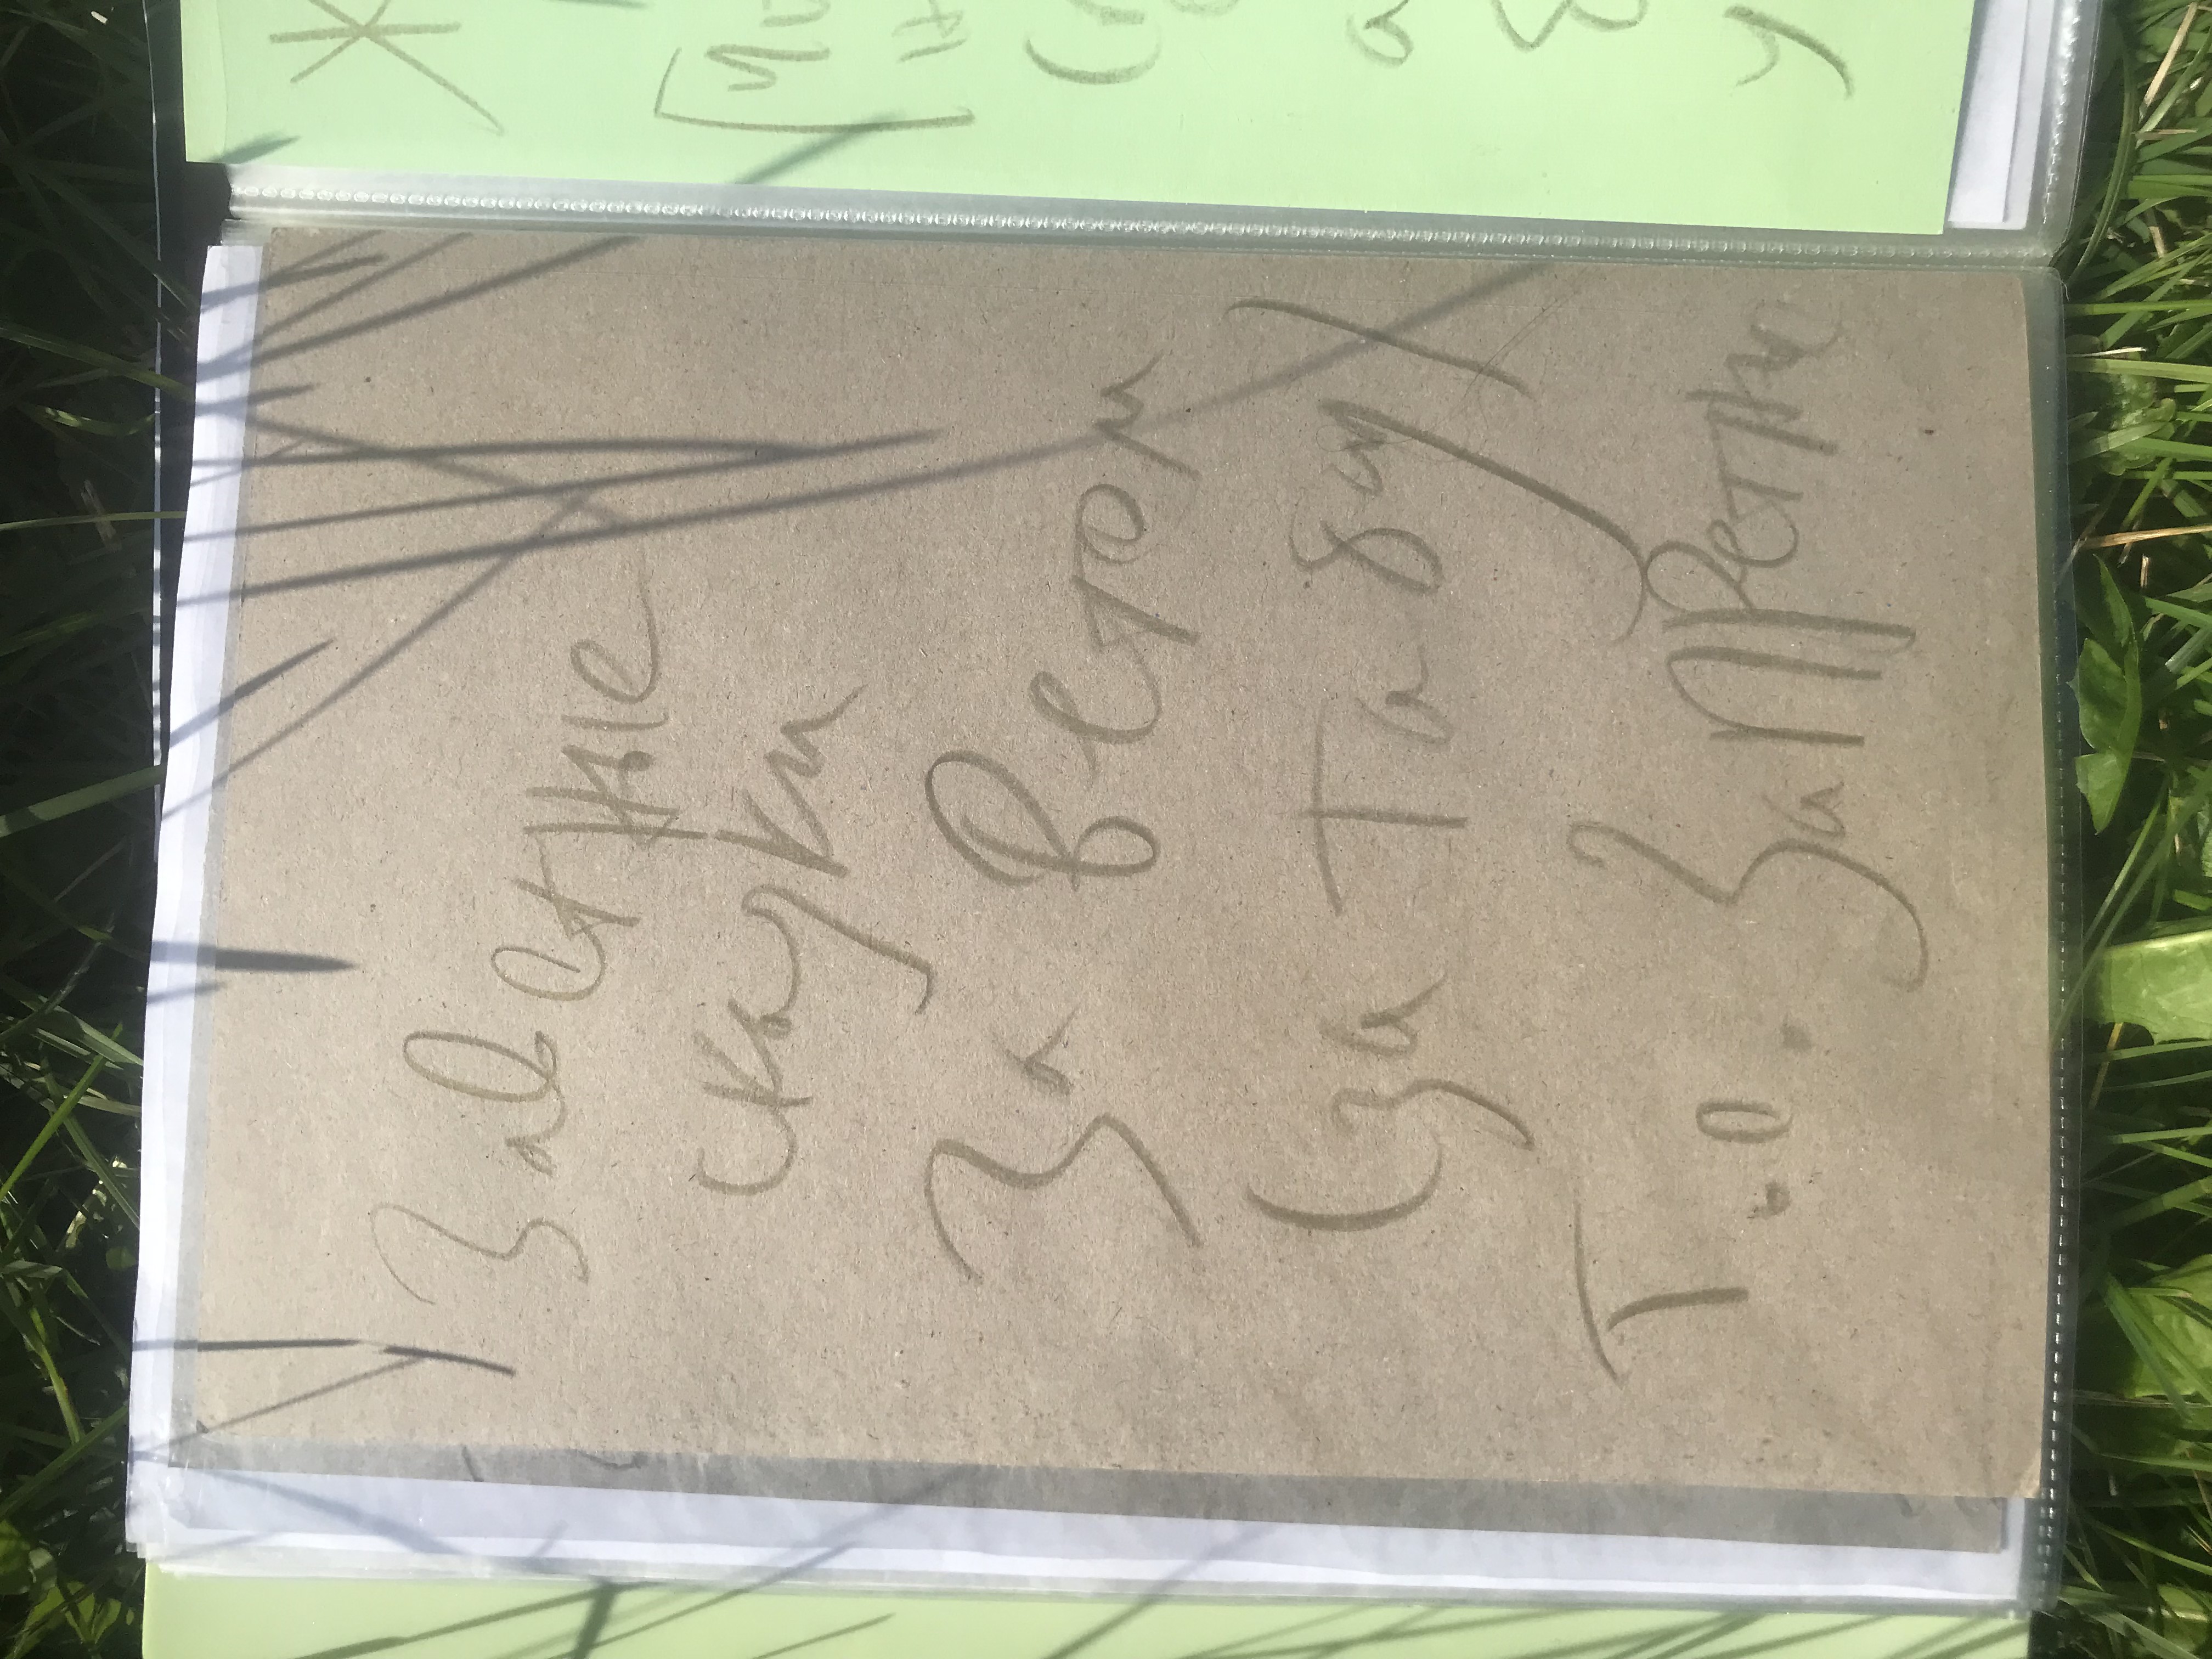 Заветные
сказки
За ветом
(за табу)
Т.е. Запретные
Ж
Чи
н
а
у